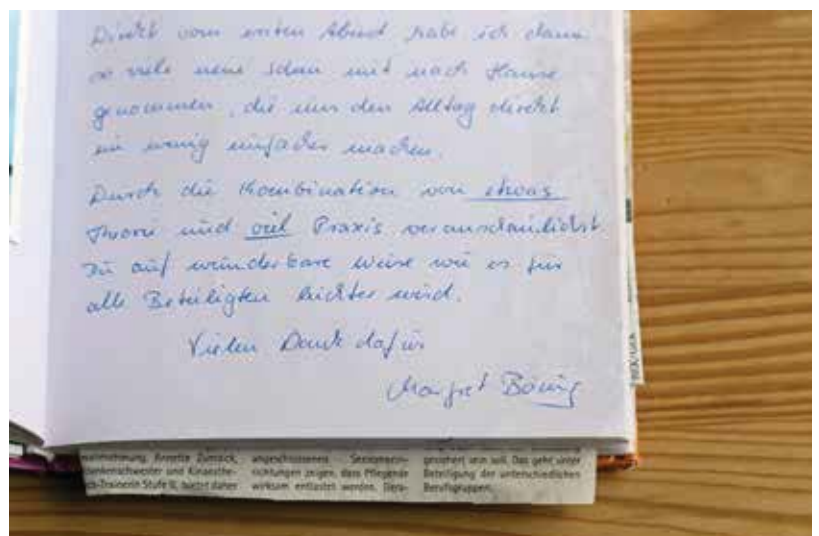 Direkt vom ersten Abend habe ich dann
so viele neue Ideen mit nach Hause
genommen, die uns den Alltag direkt
ein wenig einfacher machen.
Durch die Kombination von etwas
Theorie und viel Praxis veranschaulichst
Du auf wunderbare Weise wie es für
alle Beteiligten leichter wird.
Vielen Dank dafür
Margret Böing
wahrnehmung. Annette Zumsick,
Krankenschwester und Kinaesthe-
tics-Trainerin Stufe III, bietet daher
angeschlossenen
richtungen zeigen, dass Pflegende
wirksam entlastet werden.
gesichert sein soll. Das geht unter
Beteiligung der unterschiedlichen
Berufsgruppen.